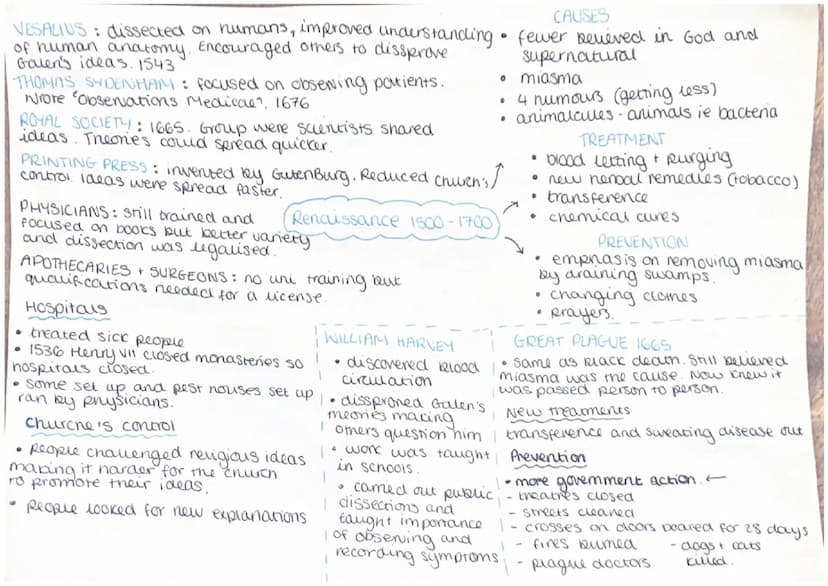 VESALIUS : dissected on humans, improved understanding
of human anatomy. Encouraged others to dissprove
Galen's ideas. 1543
THOMAS SYDENHAM : focused on observing patients.
Wrote "Observations Medicae". 1676
ROYAL SOCIETY : 1665. Group were scientists shared
ideas. Theories could spread quicker.
PRINTING PRESS : invented by Gutenburg. Reduced Church's
control. Ideas were spread faster.
PHYSICIANS : Still trained and
focused on books but better variety
and dissection was legalised.
APOTHECARIES + SURGEONS : no uni training but
qualifications needed for a license.
Hospitals
• treated sick people
• 1536 Henry VII closed monasteries so
hospitals closed.
• some set up and pest houses set up
ran by physicians.
Churche's control
• People challenged religious ideas
making it harder for the church
to promote their ideas.
• People looked for new explanations
Renaissance 1500-1700
CAUSES
• fewer believed in God and
supernatural
• miasma
• 4 humours (getting less)
• animalcules - animals ie bacteria
TREATMENT
• blood letting + purging
• new herbal remedies (tobacco)
• transference
• chemical cures
PREVENTION
• emphasis on removing miasma
by draining swamps.
• changing clothes
• prayers.
WILLIAM HARVEY
• discovered blood
circulation
• dissproned Galen's
theories making
others question him
• work was taught
in schools.
• carried out public
dissections and
taught importance
of observing and
recording symptoms
GREAT PLAGUE 1665
• same as black death. Still believed
miasma was the cause. Now knew it
was passed person to person.
New treatments
transference and sweating disease out
Prevention
• more government action. ←
- theatres closed
- streets cleaned
- crosses on doors boared for 28 days
- fires burned - dogs + cats
- plague doctors killed.